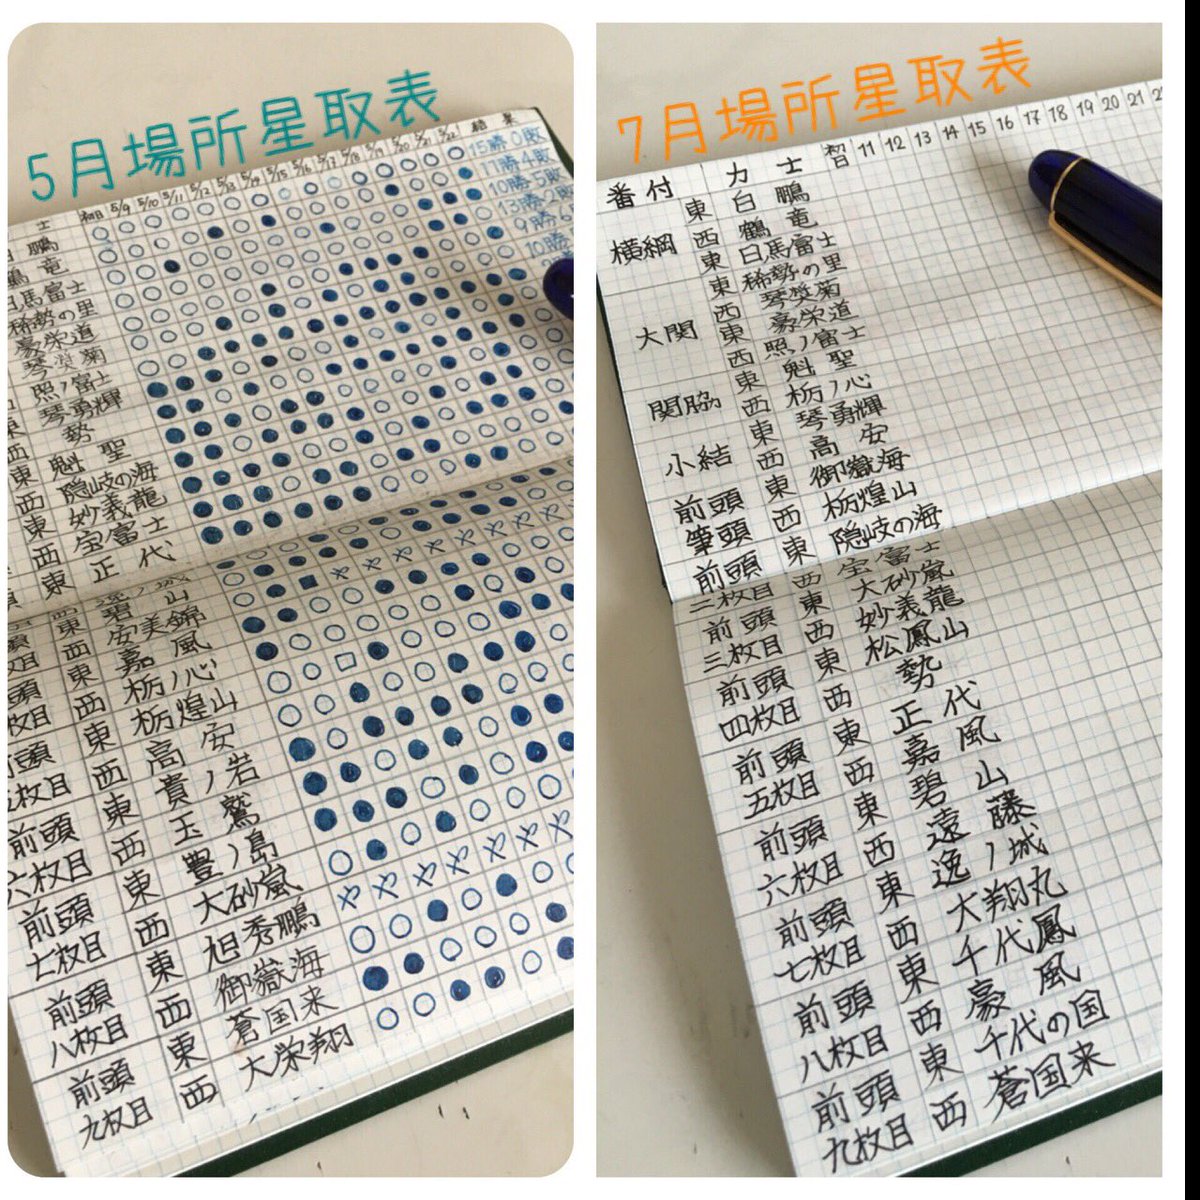 5月場所星取表
士 初日 5/9 5/10 5/11 5/12 5/13 5/14 5/15 5/16 5/17 5/18 5/19 5/20 5/21 5/22 結果
白鵬 15勝0敗
鶴竜 11勝4敗
日馬富士 10勝5敗
稀勢の里 13勝2敗
豪栄道
琴奨菊
照ノ富士
琴勇輝
勢
東 魁聖
西 隠岐の海
東 妙義龍
西 宝富士
東 正代
東 碧山
西 安美錦
東 嘉風
西 栃ノ心
前頭 東 栃煌山
五枚目 西 高安
前頭 東 貴ノ岩
六枚目 西 玉鷲
前頭 東 豊ノ島
七枚目 西 大砂嵐
東 旭秀鵬
前頭 西 御嶽海
八枚目 東 蒼国来
前頭 西 大栄翔
九枚目
7月場所星取表
番付 力士 11 12 13 14 15 16 17 18 19 20 21
横綱 東 白鵬
西 鶴竜
東 日馬富士
大関 東 稀勢の里
西 琴奨菊
東 豪栄道
西 照ノ富士
関脇 東 魁聖
西 栃ノ心
小結 東 琴勇輝
西 高安
前頭 東 御嶽海
筆頭 西 栃煌山
前頭 東 隠岐の海
二枚目 西 宝富士
前頭 東 大砂嵐
三枚目 西 妙義龍
前頭 東 松鳳山
四枚目 西 勢
前頭 東 正代
五枚目 西 嘉風
前頭 東 碧山
六枚目 西 遠藤
前頭 東 逸ノ城
七枚目 西 大翔丸
前頭 東 千代鳳
八枚目 西 豪風
前頭 東 千代の国
九枚目 西 蒼国来